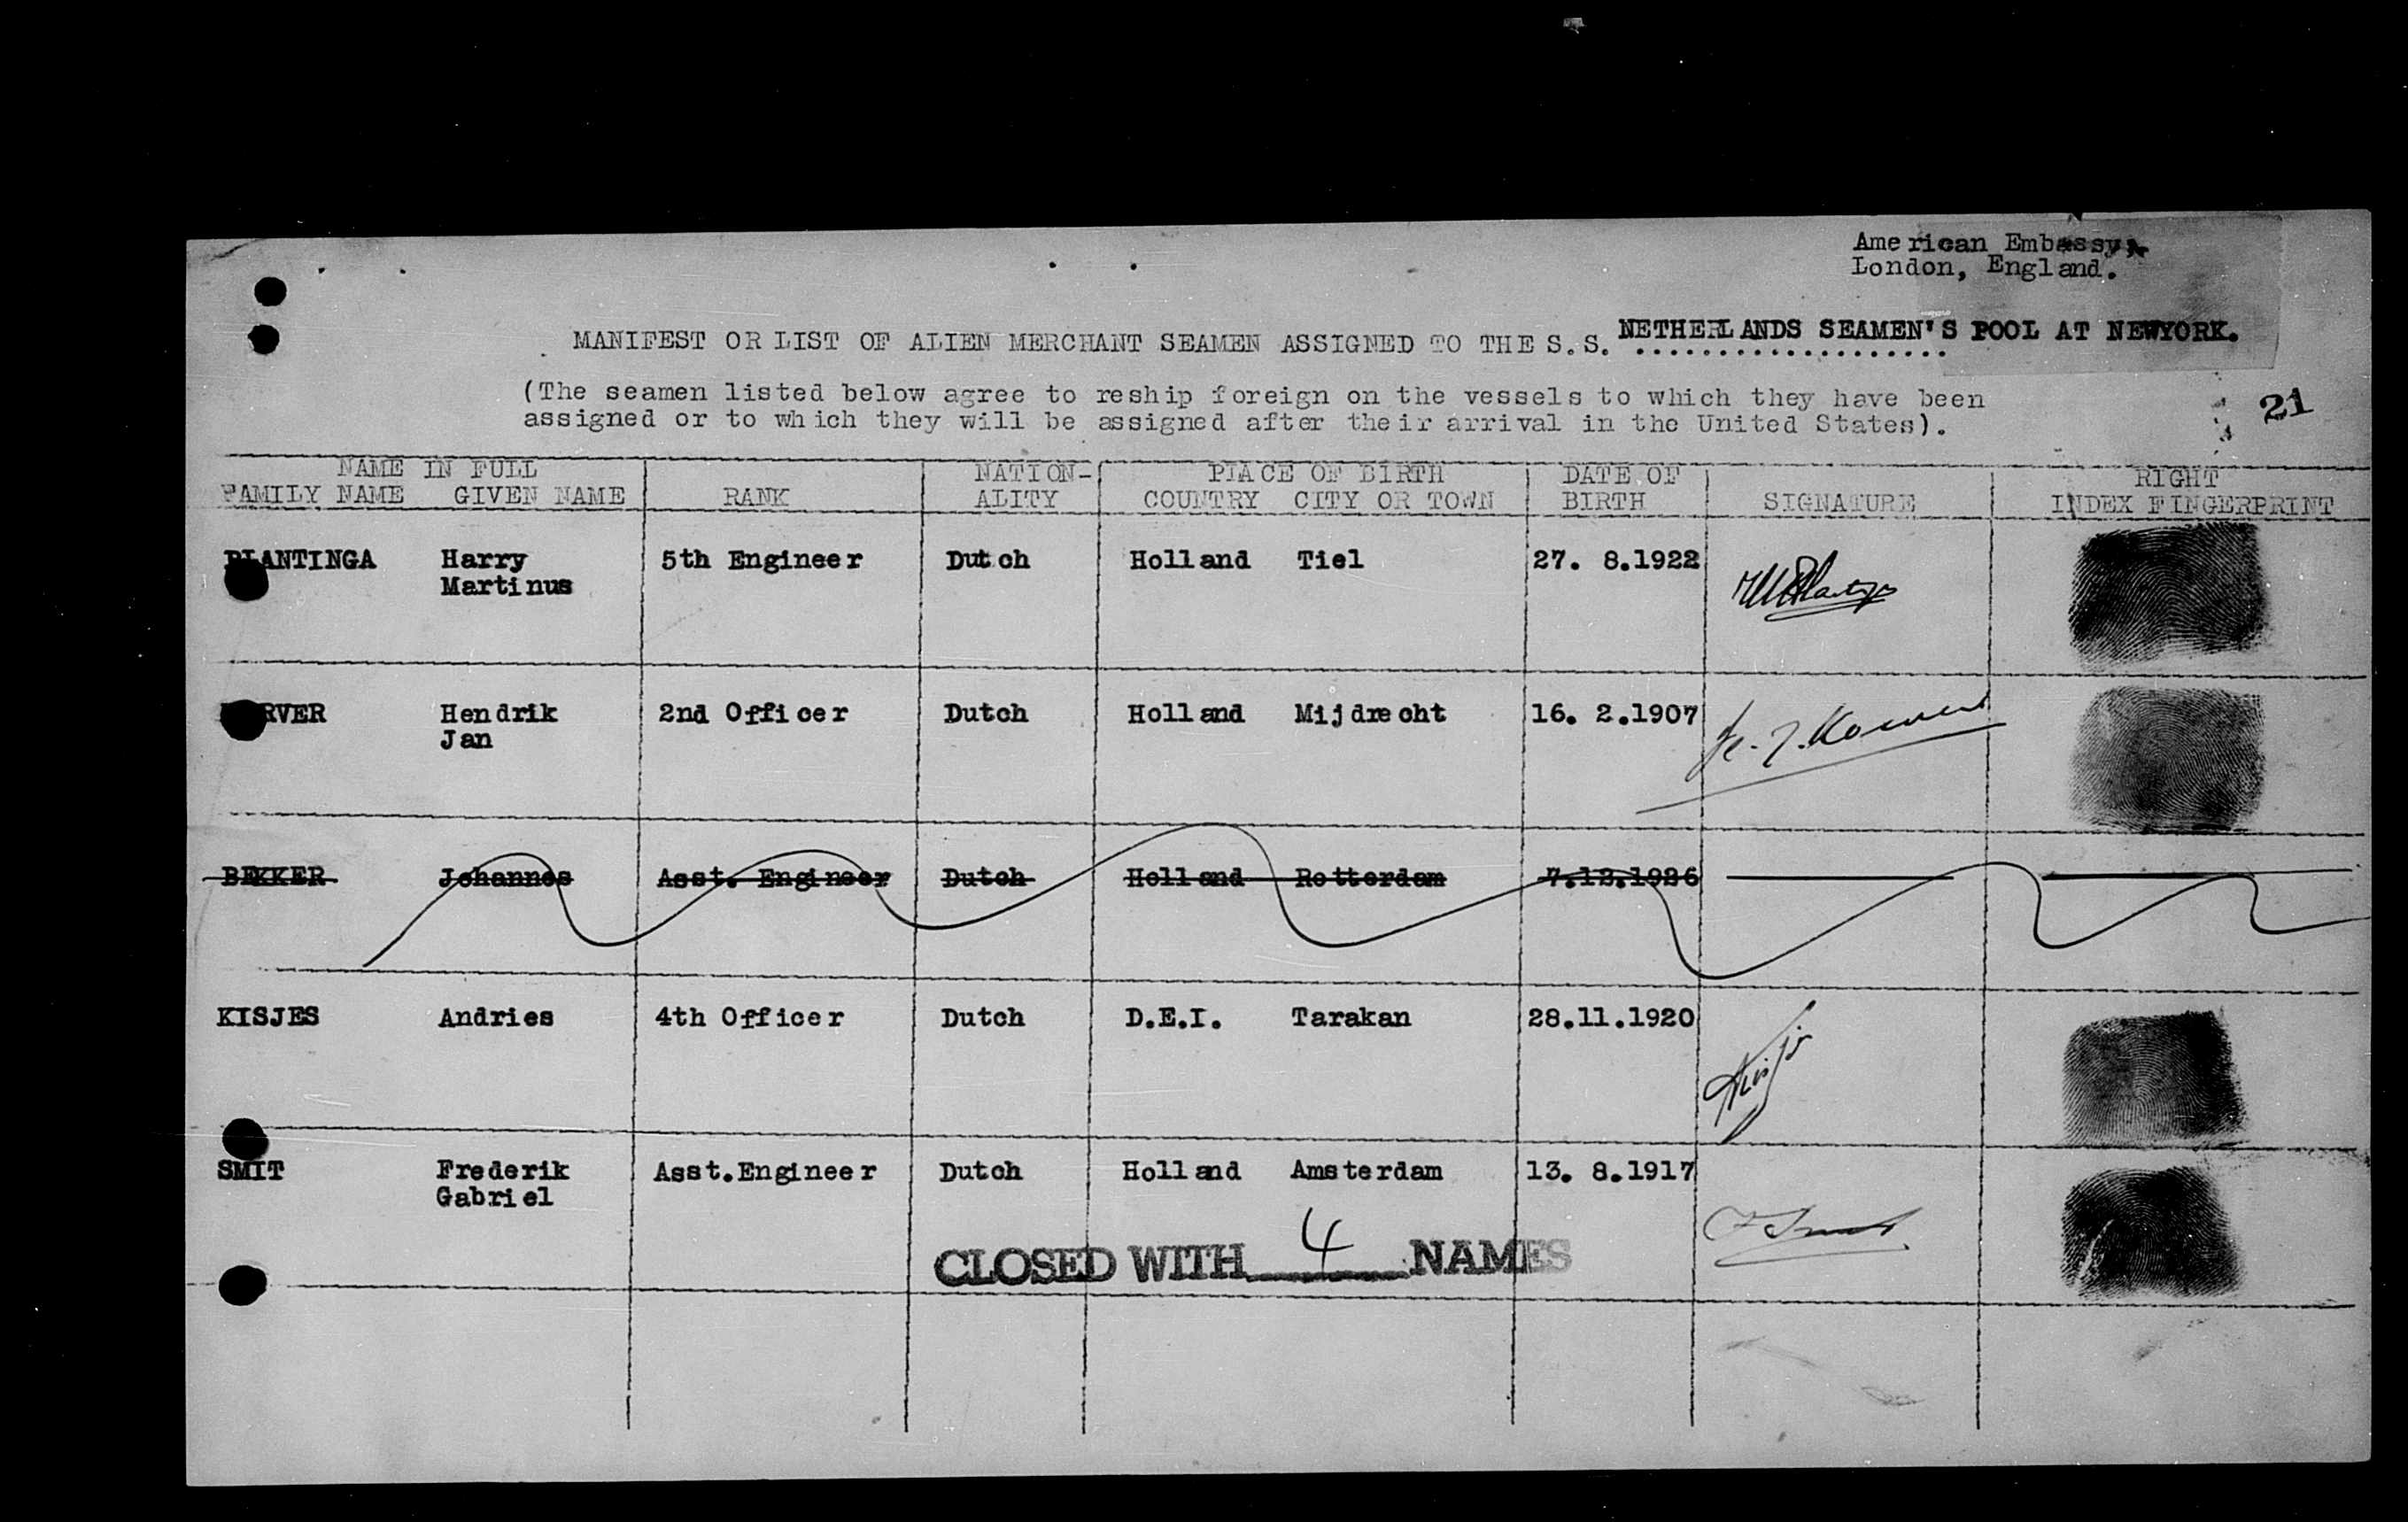 American Embassy,
London, England.
MANIFEST OR LIST OF ALIEN MERCHANT SEAMEN ASSIGNED TO THE S.S. NETHERLANDS SEAMEN'S POOL AT NEWYORK.
(The seamen listed below agree to reship foreign on the vessels to which they have been
assigned or to which they will be assigned after their arrival in the United States).
21
NAME IN FULL NATION- PLACE OF BIRTH DATE OF RIGHT
FAMILY NAME GIVEN NAME RANK ALITY COUNTRY CITY OR TOWN BIRTH SIGNATURE INDEX FINGERPRINT
PLANTINGA Harry 5th Engineer Dutch Holland Tiel 27. 8.1922
Martinus
Hendrik 2nd Officer Dutch Holland Mijdrecht 16. 2.1907
Jan
BEKKER Johannes Asst. Engineer Dutch Holland Rotterdam 7.12.1926
KISJES Andries 4th Officer Dutch D.E.I. Tarakan 28.11.1920
Kisjes
SMIT Frederik Asst.Engineer Dutch Holland Amsterdam 13. 8.1917
Gabriel
F Smit
CLOSED WITH 4 NAMES